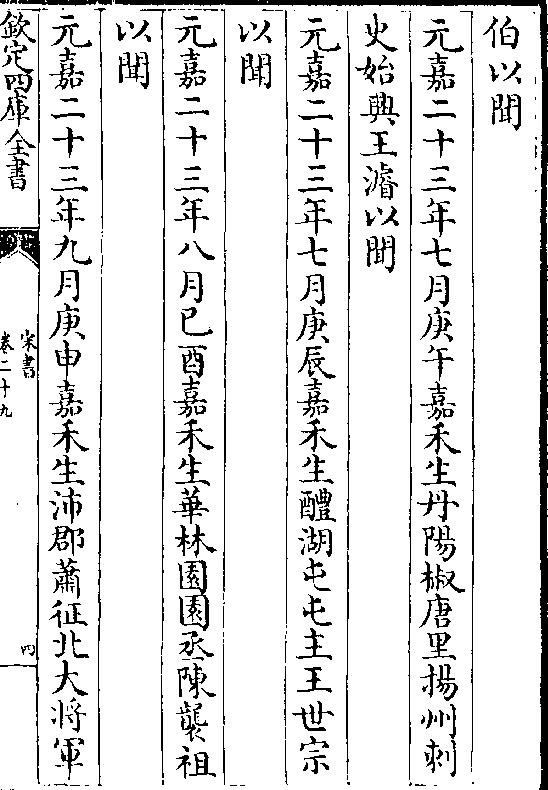 伯以聞
元嘉二十三年七月庚午嘉禾生丹陽椒唐里揚州刺
史始興王濬以聞
元嘉二十三年七月庚辰嘉禾生醴湖屯屯主王世宗
以聞
元嘉二十三年八月己酉嘉禾生華林園園丞陳襲祖
以聞
元嘉二十三年九月庚申嘉禾生沛郡蕭征北大將軍
欽定四庫全書
宋書
卷二十九
四